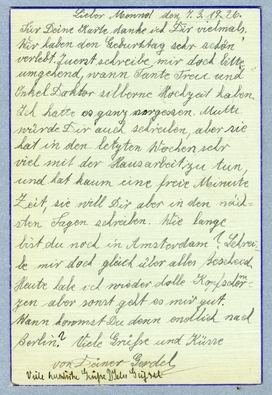 Lieber Menno! den 7.3.1926.
Für Deine Karte danke ich Dir vielmals.
Wir haben den Geburtstag sehr schön
verlebt. Zuerst schreibe mir doch bitte
umgehend, wann Tante Treu und
Onkel Doktor silberne Hochzeit haben.
Ich hatte es ganz vergessen. Mutti
würde Dir auch schreiben, aber sie
hat in den letzten Wochen sehr
viel mit der Hausarbeit zu tun,
und hat kaum eine freie Minute
Zeit, sie will Dir aber in den näch-
sten Tagen schreiben. Wie lange
bist du noch in Amsterdam? Schrei-
be mir doch gleich über alles Bescheid.
Heute habe ich wieder dolle Kopfschmer-
zen aber sonst geht es mir gut.
Wann kommst Du denn endlich nach
Berlin? Viele Grüße und Küsse
von Deiner Gerdel
Viele Grüße